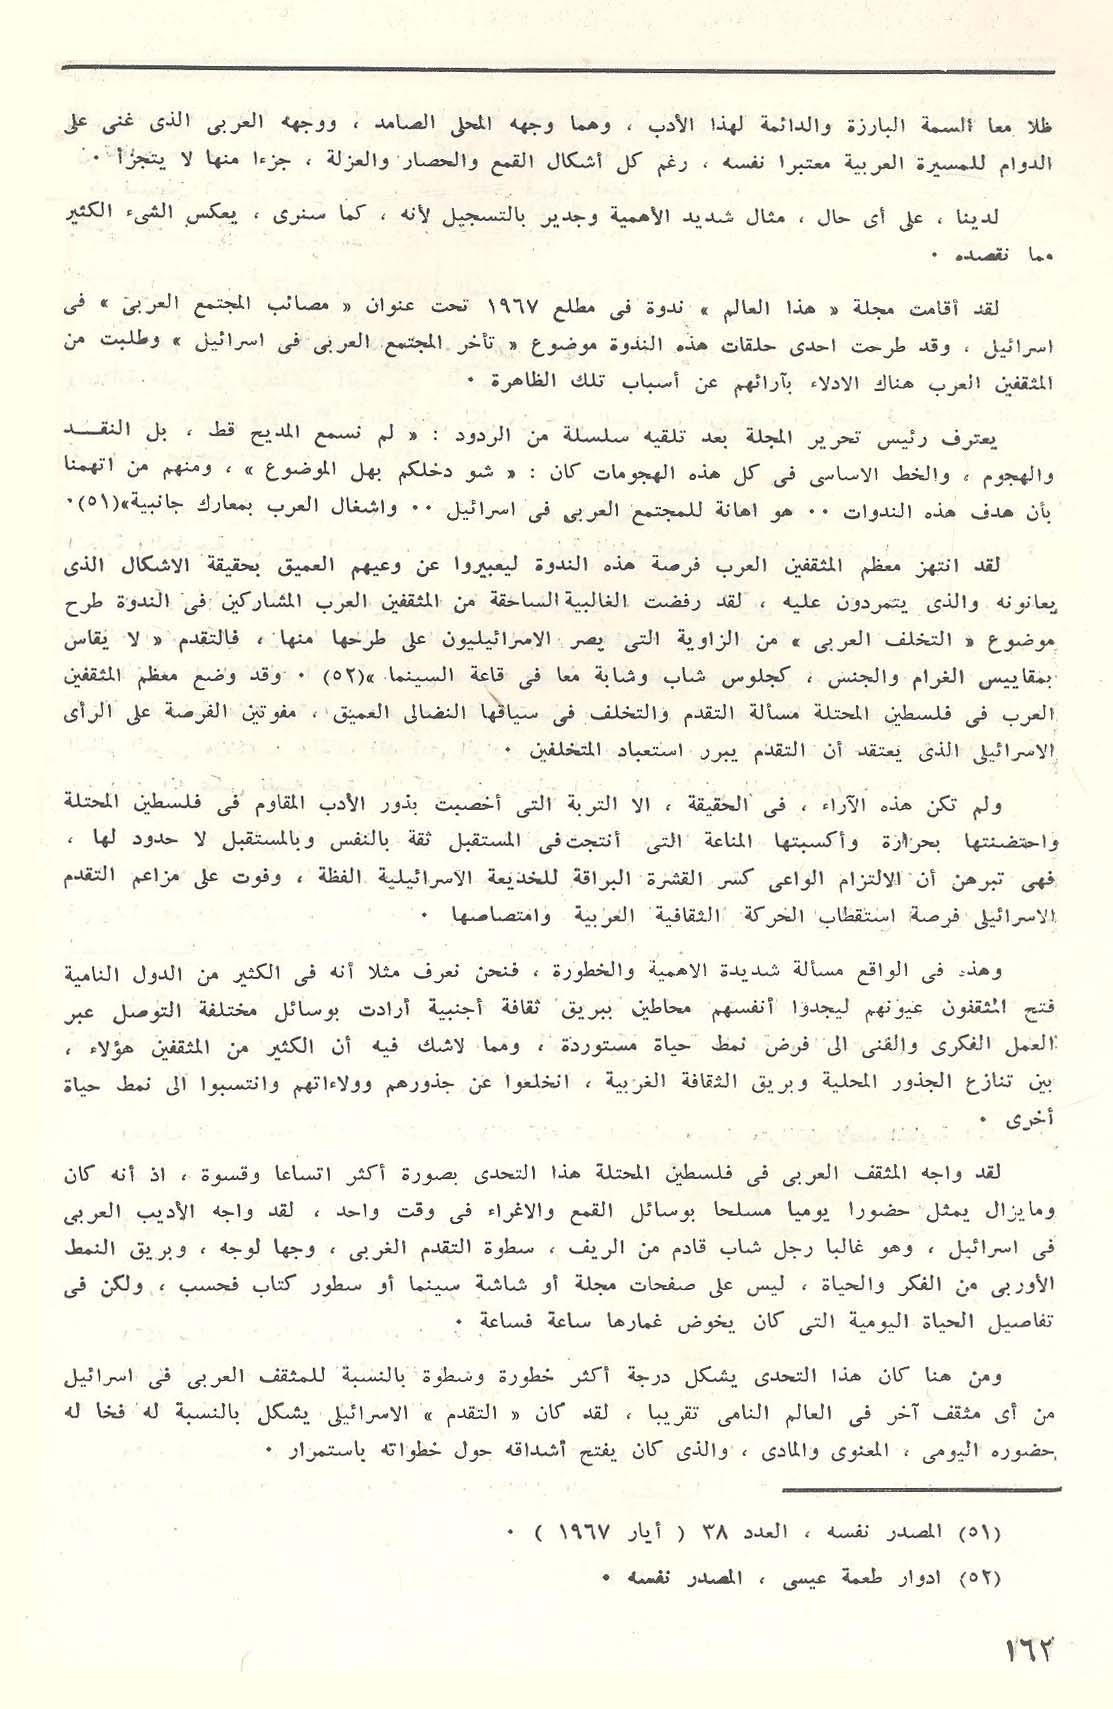 ظلا معا السمة البارزة والدائمة لهذا الأدب ، وهما وجهه المحلى الصامد ، ووجهه العربى الذى غنى على
الدوام للمسيرة العربية معتبرا نفسه ، رغم كل أشكال القمع والحصار والعزلة ، جزءا منها لا يتجزأ ٠
لدينا ، على أى حال ، مثال شديد الأهمية وجدير بالتسجيل لأنه ، كما سنرى ، يعكس الشىء الكثير
مما نقصده ٠
لقد أقامت مجلة « هذا العالم » ندوة فى مطلع ١٩٦٧ تحت عنوان « مصائب المجتمع العربى » فى
اسرائيل ، وقد طرحت احدى حلقات هذه الندوة موضوع « تأخر المجتمع العربى فى اسرائيل » وطلبت من
المثقفين العرب هناك الادلاء بآرائهم عن أسباب تلك الظاهرة ٠
يعترف رئيس تحرير المجلة بعد تلقيه سلسلة من الردود : « لم نسمع المديح قط ، بل النقـــد
والهجوم ، والخط الاساسى فى كل هذه الهجومات كان : « شو دخلكم بهل الموضوع » ، ومنهم من اتهمنا
بأن هدف هذه الندوات ٠٠ هو اهانة للمجتمع العربى فى اسرائيل ٠٠ واشغال العرب بمعارك جانبية»(٥١)٠
لقد انتهز معظم المثقفين العرب فرصة هذه الندوة ليعبيروا عن وعيهم العميق بحقيقة الاشكال الذى
يعانونه والذى يتمردون عليه ، لقد رفضت الغالبية الساحقة من المثقفين العرب المشاركين فى الندوة طرح
موضوع « التخلف العربى » من الزاوية التى يصر الاسرائيليون على طرحها منها ، فالتقدم « لا يقاس
بمقاييس الغرام والجنس ، كجلوس شاب وشابة معا فى قاعة السينما »(٥٢) ٠ وقد وضع معظم المثقفين
العرب فى فلسطين المحتلة مسألة التقدم والتخلف فى سياقها النضالى العميق ، مفوتين الفرصة على الرأى
الاسرائيلى الذى يعتقد أن التقدم يبرر استعباد المتخلفين ٠
ولم تكن هذه الآراء ، فى الحقيقة ، الا التربة التى أخصبت بذور الأدب المقاوم فى فلسطين المحتلة
واحتضنتها بحرارة وأكسبتها المناعة التى أنتجت فى المستقبل ثقة بالنفس وبالمستقبل لا حدود لها ،
فهى تبرهن أن الالتزام الواعى كسر القشرة البراقة للخديعة الاسرائيلية الفظة ، وفوت على مزاعم التقدم
الاسرائيلى فرصة استقطاب الحركة الثقافية العربية وامتصاصها ٠
وهذه فى الواقع مسألة شديدة الاهمية والخطورة ، فنحن نعرف مثلا أنه فى الكثير من الدول النامية
فتح المثقفون عيونهم ليجدوا أنفسهم محاطين ببريق ثقافة أجنبية أرادت بوسائل مختلفة التوصل عبر
العمل الفكرى والفنى الى فرض نمط حياة مستوردة ، ومما لاشك فيه أن الكثير من المثقفين هؤلاء ،
بين تنازع الجذور المحلية وبريق الثقافة الغربية ، انخلعوا عن جذورهم وولاءاتهم وانتسبوا الى نمط حياة
أخرى ٠
لقد واجه المثقف العربى فى فلسطين المحتلة هذا التحدى بصورة أكثر اتساعا وقسوة ، اذ أنه كان
ومايزال يمثل حضورا يوميا مسلحا بوسائل القمع والاغراء فى وقت واحد ، لقد واجه الأديب العربى
فى اسرائيل ، وهو غالبا رجل شاب قادم من الريف ، سطوة التقدم الغربى ، وجها لوجه ، وبريق النمط
الأوربى من الفكر والحياة ، ليس على صفحات مجلة أو شاشة سينما أو سطور كتاب فحسب ، ولكن فى
تفاصيل الحياة اليومية التى كان يخوض غمارها ساعة فساعة ٠
ومن هنا كان هذا التحدى يشكل درجة أكثر خطورة وسطوة بالنسبة للمثقف العربى فى اسرائيل
من أى مثقف آخر فى العالم النامى تقريبا ، لقد كان « التقدم » الاسرائيلى يشكل بالنسبة له فخا له
حضوره اليومى ، المعنوى والمادى ، والذى كان يفتح أشداقه حول خطواته باستمرار ٠
(٥١) المصدر نفسه ، العدد ٣٨ ( أيار ١٩٦٧ ) ٠
(٥٢) ادوار طعمة عيسى ، المصدر نفسه ٠
١٦٢